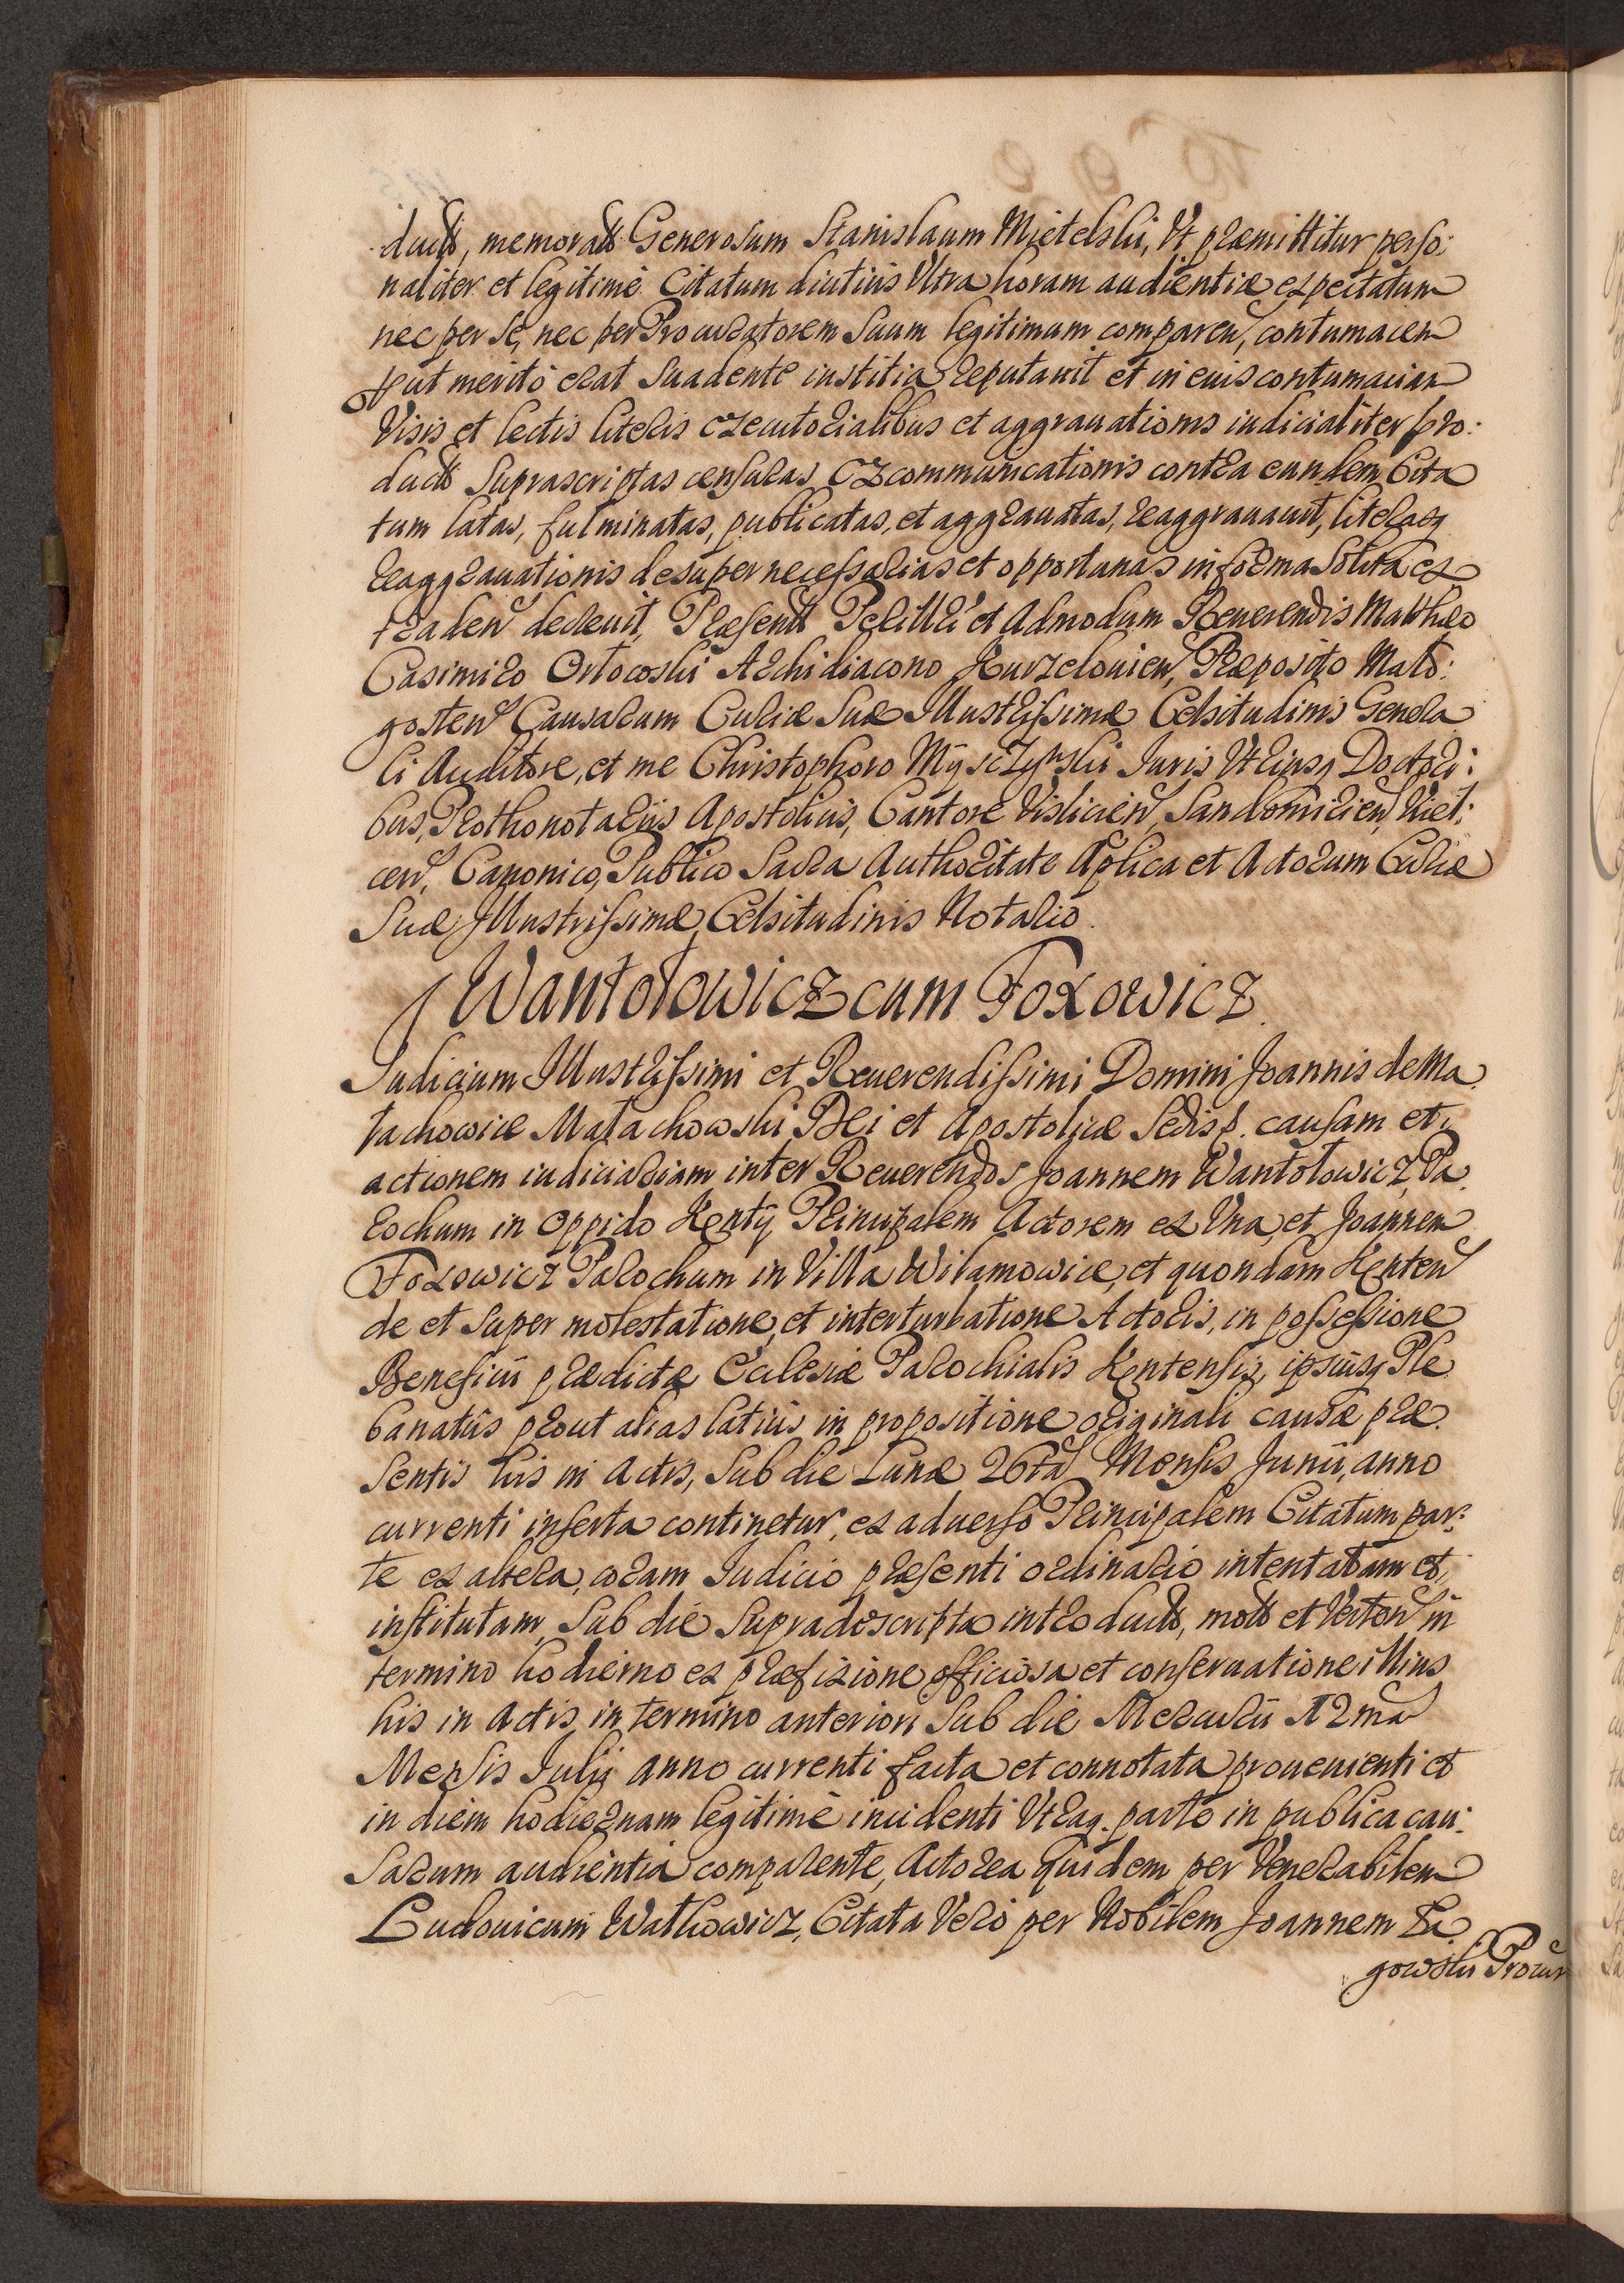 ductis, memoratum Generosum Stanislaum Mietelski, Vt præmittitur perso:
naliter et legitimè Citatum diutius Vltra horam audientiæ expectatum
nec per se, nec per Procuratorem Suum legitimum comparen, contumacem
put meritò erat Suadente iustitia reputauit et in eius contumaciam
Visis et lectis literis executorialibus et aggrauationis iudicialiter pro:
ductis Suprascriptas censuras Excommunicationis contra eundem Cita
tum latas, fulminatas, publicatas, et aggrauatas, reaggrauauit, literasq
reaggrauationis desuper necessarias et opportunas in forma Solita ex
traden decreuit, Præsentibus Perilli et Admodum Reuerendis Matthæo
Casimiro Ortowski Archidiacono Kurzelouien, Præposito Mało:
gosten Causarum Curiæ Suæ Illustrissimæ Celsitudinis Genera
li Auditore, et me Christophoro Mysczynski Iuris Vtriusq Doctori:
bus, Prothonotarijs Apostolicis, Cantore Vislicien, Sandomirien, Kiel:
cen, Canonico, Publico Sacra Authoritate Aplica et Actorum Curiæ
Suæ Illustrissimæ Celsitudinis Notario.
Wantołowicz cum Foxowicz.
Iudicium Illustrissimi et Reuerendissimi Domini Joannis de Ma
łachowice Małachowski Dei et Apostolicæ Sedis p. causam et
actionem iudiciariam inter Reuerendos Joannem Wantołowicz Pa
rochum in Oppido Kenty Principalem Actorem ex Vna, et Joannem
Foxowicz Parochum in Villa Wilamowice, et quondam Kenten
de et Super molestatione, et interturbatione Actoris, in possessione
Beneficij prædictæ Ecclesiæ Parochialis Kentensis, ipsiusq Ple
banatûs prout alias latiùs in propositione originali causæ præ
sentis his in Actis, Sub die Lunæ 26ta Mensis Junij, anno
currenti inserta continetur, ex aduerso Principalem Citatum par:
te ex altera, coram Iudicio præsenti ordinario intentatam et
institutam, Sub die Supradescripta introductis, motis et Verten in
termino hodierno ex præfixione officiosa et conseruatione illius
his in Actis in termino anteriori Sub die Mercurij 12ma
Mensis Iulij anno currenti facta et connotata prouenienti et
in diem hodiernam legitimè incidenti Vtraq. parte in publica cau:
sarum audientia comparente, Actorea quidem per Venerabilem
Ludouicum Watkowicz, Citata Verò per Nobilem Joannem Za
gowski Procur